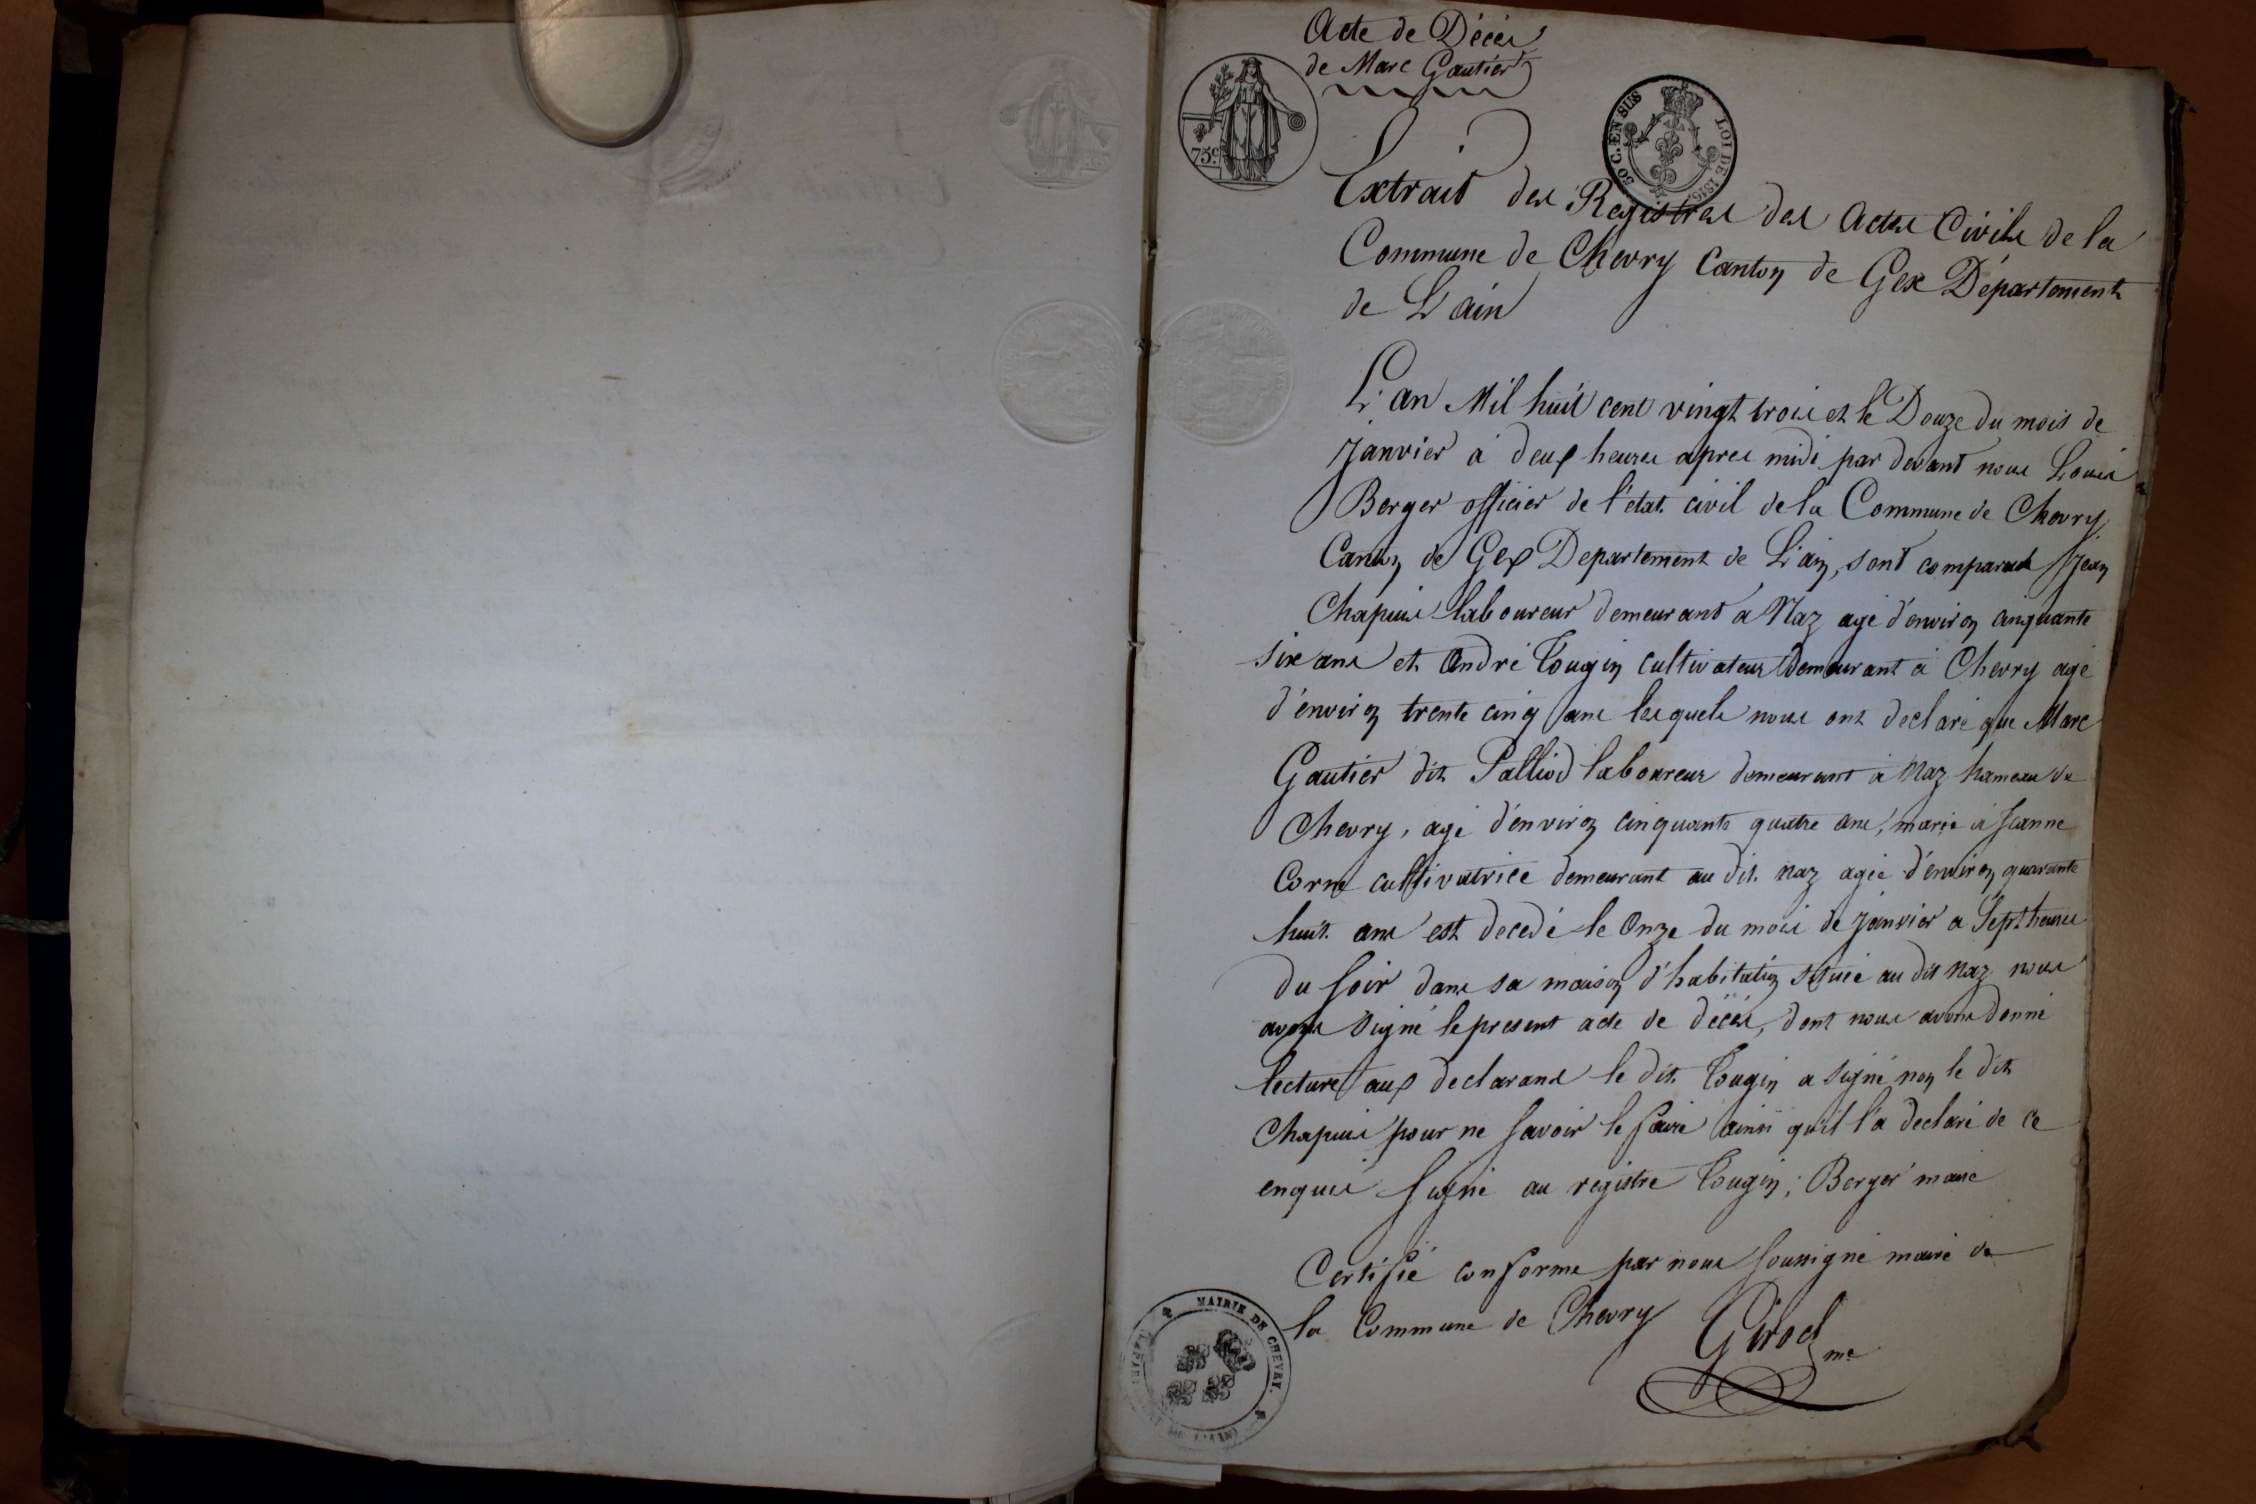 Acte de Décès
de Marc Gautier
75 c.
50 C. EN SUS LOI DE 1816
Extrait des Registres des Actes Civils de la
Commune de Chevry Canton de Gex Département
de L'ain
L'an Mil huit cent vingt trois et le Douze du mois de
janvier à deux heures apres midi par devant nous Louis
Berger officier de l'état civil de la Commune de Chevry
Canton de Gex Departement de L'ain, sont comparus Jean
Chapuis laboureur demeurant à Naz agé d'environ cinquante
six ans et André Tougin cultivateur demeurant à Chevry agé
d'environ trente cinq ans lesquels nous ont declaré que Marc
Gautier dit Palliod laboureur demeurant à Naz hameau de
Chevry, agé d'environ cinquante quatre ans, marié à Jeanne
Corne cultivatrice demeurant au dit naz agée d'environ quarante
huit ans est decedé le Onze du mois de janvier a Sept heures
du soir dans sa maison d'habitation située au dit naz nous
avons signé le present acte de décès, dont nous avons donné
lecture aux declarans le dit Tougin a signé non le dit
Chapuis pour ne savoir le faire ainsi qu'il l'a declaré de ce
enquis signé au registre Tougin; Berger maire
Certifié conforme par nous soussigné maire de
la Commune de Chevry
Girod
me
MAIRIE DE CHEVRY.